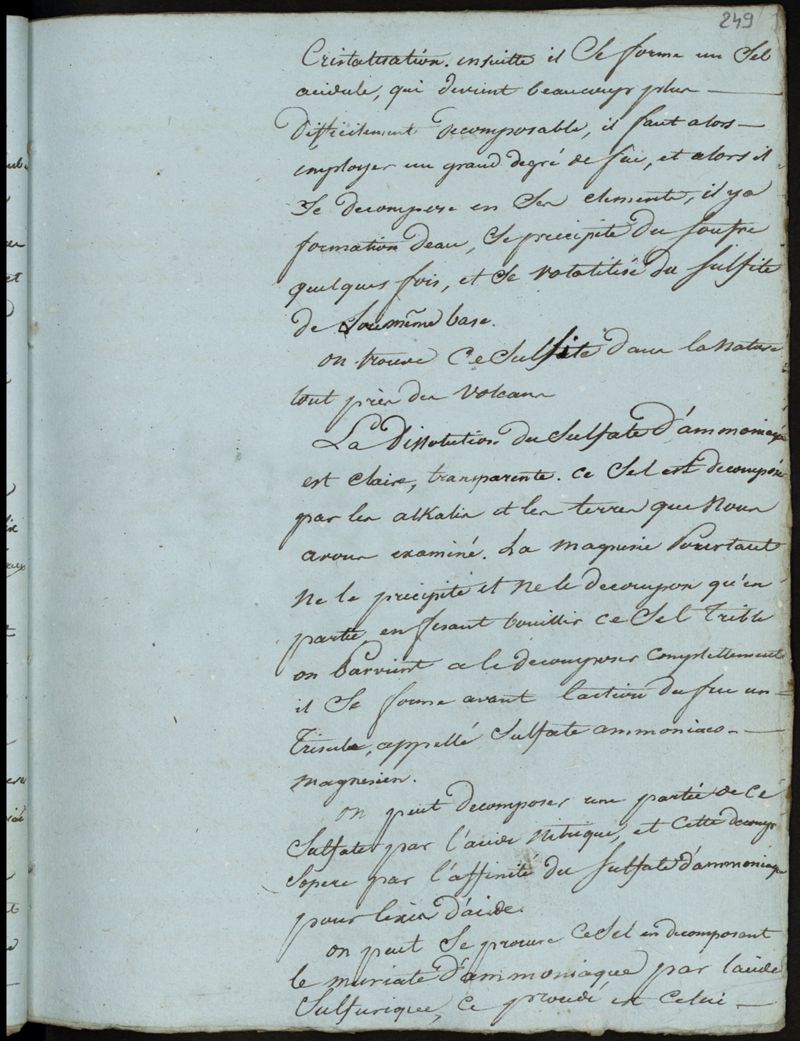 249
Cristalisation. ensuitte il Se forme un Sel
acidule, qui devient beaucoup plus
Difficilement Decomposable, il faut alors
employer un grand degré de feu, et alors il
Se decompose en Ses elements, il y a
formation d'eau, Se precipite du Soufre
quelques fois, et Se volatilise du Sulfite
de Sou même base.
on trouve Ce Sulfite dans la Nature
tout près des Volcans
La Dissolution du Sulfate d'ammoniaque
est Claire, transparente. Ce Sel est decomposé
par les alkalis et les terres que Nous
avons examiné. La magnesie Pourtant
Ne le precipite et Ne le decompose qu'en
partie, en fesant bouillir ce Sel Trible
on Parvient a le decomposer complettement
il Se forme avant l'action du feu un
Trisule, appellé Sulfate ammoniaco-
magnesien.
On peut decomposer une partie de Ce
Sulfate par l'acide Nitrique, et Cette decomp
Sopere par l'affinité du Sulfate d'ammoniaque
pour l'exès d'acide.
on peut Se procurer Ce Sel en decomposant
le muriate d'ammoniaque par l'acide
Sulfurique, Ce procedé est Celui